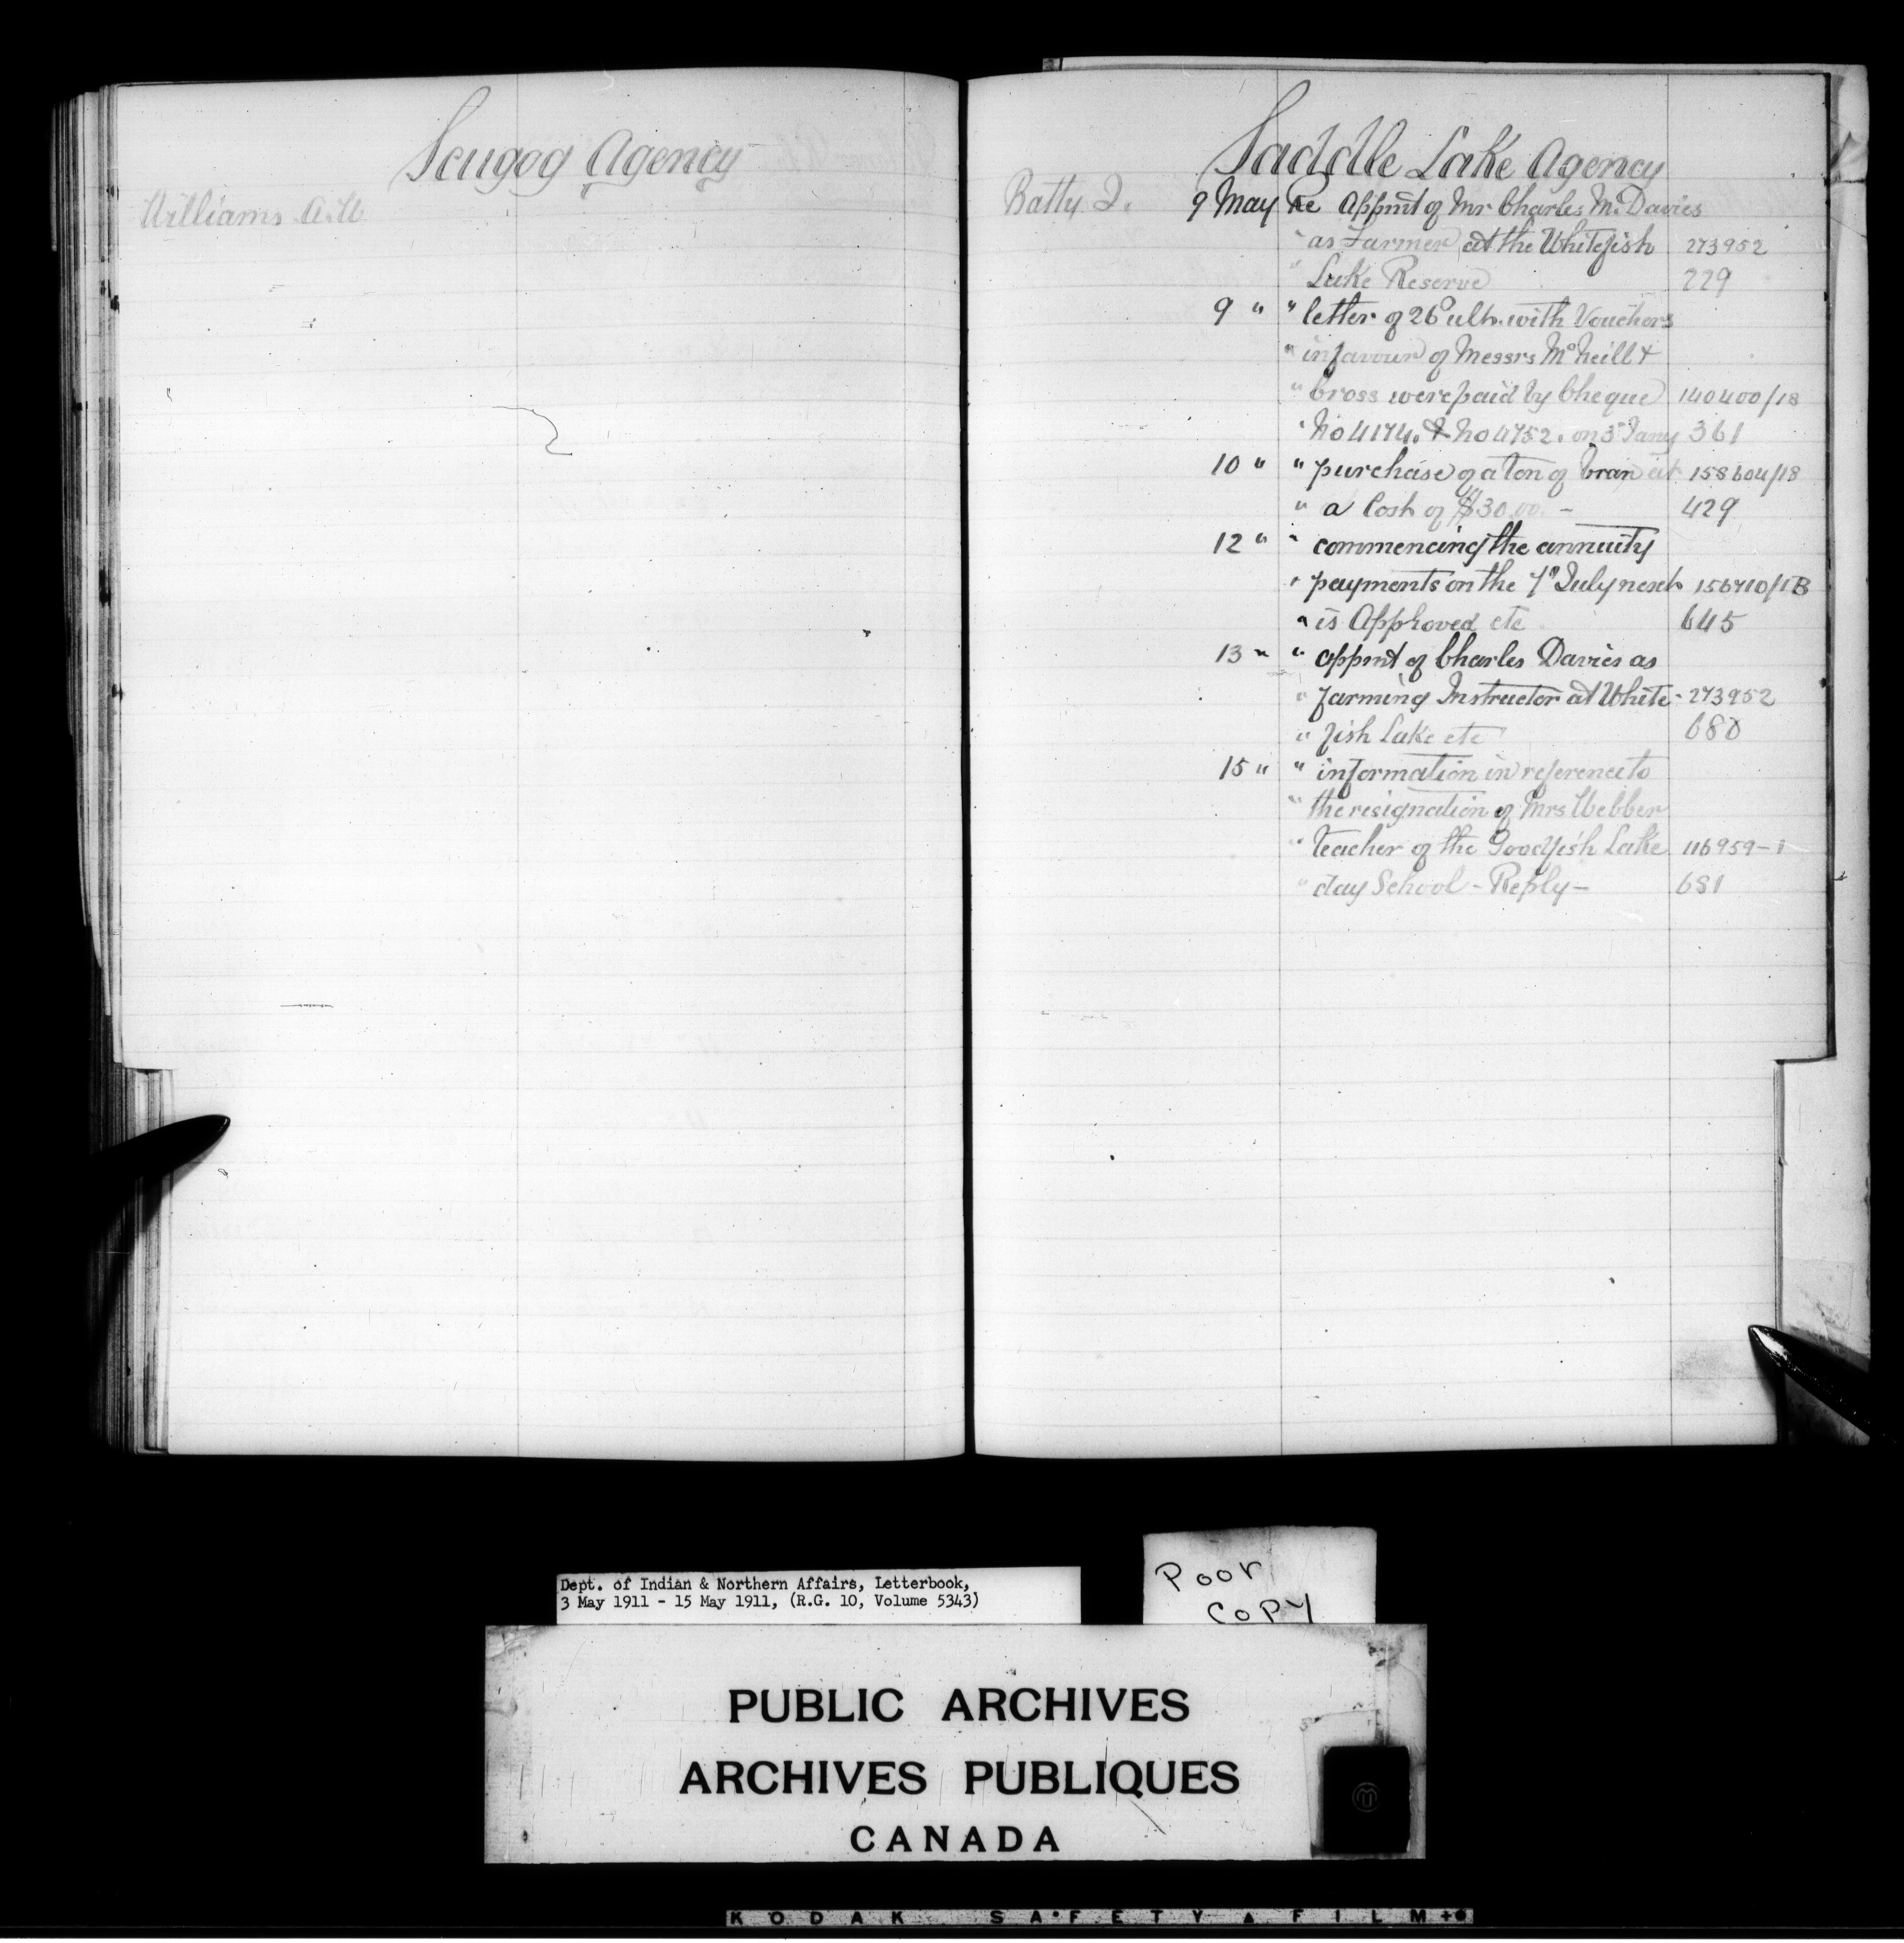 Scugog Agency
Williams A.W.
Saddle Lake Agency
Batty J. 9 May Re Appmt of Mr Charles M. Davies
" as Farmer at the Whitefish 273952
" Lake Reserve 229
9 " " letter of 26th ult. with Vouchers
" in favour of Messrs McNeill &
" Cross were paid by Cheque 140400/18
" No 4174. & No 4752. on 3rd Jany 361
10 " " purchase of a ton of bran at 158604/18
" a Cost of $30.00. - 429
12 " " commencing the annuity
" payments on the 7th July next 156710/1B
" is Approved etc 645
13 " " appmt of Charles Davies as
" farming Instructor at White- 273952
" fish Lake etc 680
15 " " information in reference to
" the resignation of Mrs Webber
" teacher of the Goodfish Lake 116959-1
" day School - Reply - 681
Dept. of Indian & Northern Affairs, Letterbook,
3 May 1911 - 15 May 1911, (R.G. 10, Volume 5343)
Poor
Copy
PUBLIC ARCHIVES
ARCHIVES PUBLIQUES
CANADA
KODAK SAFETY FILM